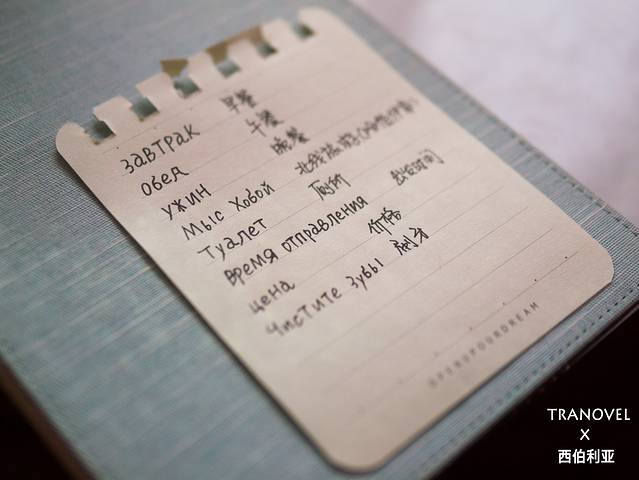 завтрак 早餐
обед 午餐
ужин 晚餐
мыс Хобой 北线旅游
туалет 厕所
время отправления 出发时间
цена 价格
чистите зубы 刷牙
OPENSYOURDREAM
TRANOVEL
X
西伯利亚